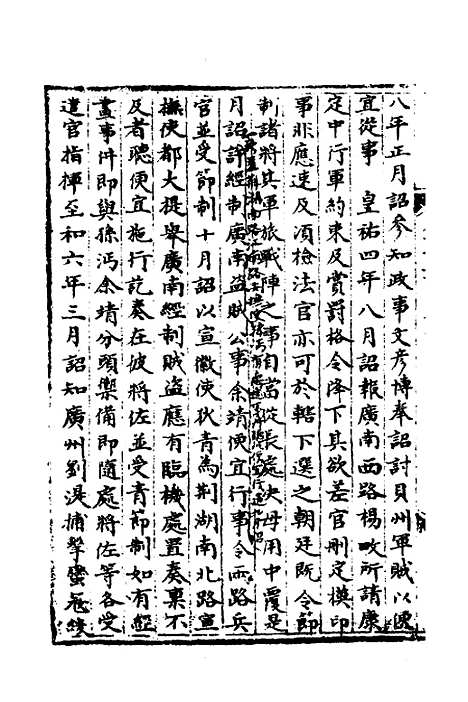 八年正月詔參知政事文彥博奉詔討貝州軍賊以便
宜從事　皇祐四年八月詔報廣南西路楊畋所請康
定中行軍約束及賞罰格令降下其欲差官刪定摸印
事非應速及須檢法官亦可於轄下選之朝廷既令節
制諸將其軍旅戰陣之事自當從長處決毋用中覆是
月詔許經制廣南盜賊公事余靖便宜行事令兩路兵
官並受節制十月詔以宣徽使狄青為荊湖南北路宣
撫使都大提舉廣南經制賊盜應有臨機處置奏稟不
及者聽便宜施行訖奏在彼將佐並受青節制如有經
畫事件即與孫沔余靖分頭禦備即隨處將佐等各受
遣官指揮至和六年三月詔知廣州劉湜捕擊蠻